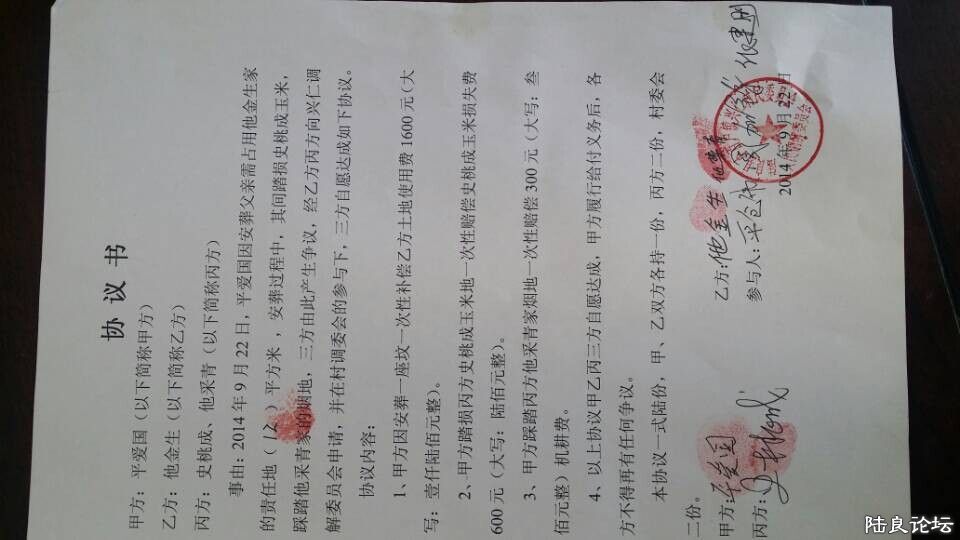 协 议 书
甲方：平爱国（以下简称甲方）
乙方：他金生（以下简称乙方）
丙方：史桃成、他采青（以下简称丙方）
事由：2014 年 9 月 22 日，平爱国因安葬父亲需占用他金生家
的责任地（12）平方米，安葬过程中，其间踏损史桃成玉米，
踩踏他采青家的烟地，三方由此产生争议，经乙方丙方向兴仁调
解委员会申请，并在村调委会的参与下，三方自愿达成如下协议。
协议内容：
1、甲方因安葬一座坟一次性补偿乙方土地使用费 1600 元（大
写：壹仟陆佰元整）。
2、甲方踏损丙方史桃成玉米地一次性赔偿史桃成玉米损失费
600 元（大写：陆佰元整）。
3、甲方踩踏丙方他采青家烟地一次性赔偿 300 元（大写：叁
佰元整）机耕费。
4、以上协议甲乙丙三方自愿达成，甲方履行给付义务后，各
方不得再有任何争议。
本协议一式陆份，甲、乙双方各持一份，丙方二份，村委会
二份。
甲方：平爱国 乙方：他金生
丙方：史桃成 参与人：
2014 年 9 月 22 日
陆良论坛